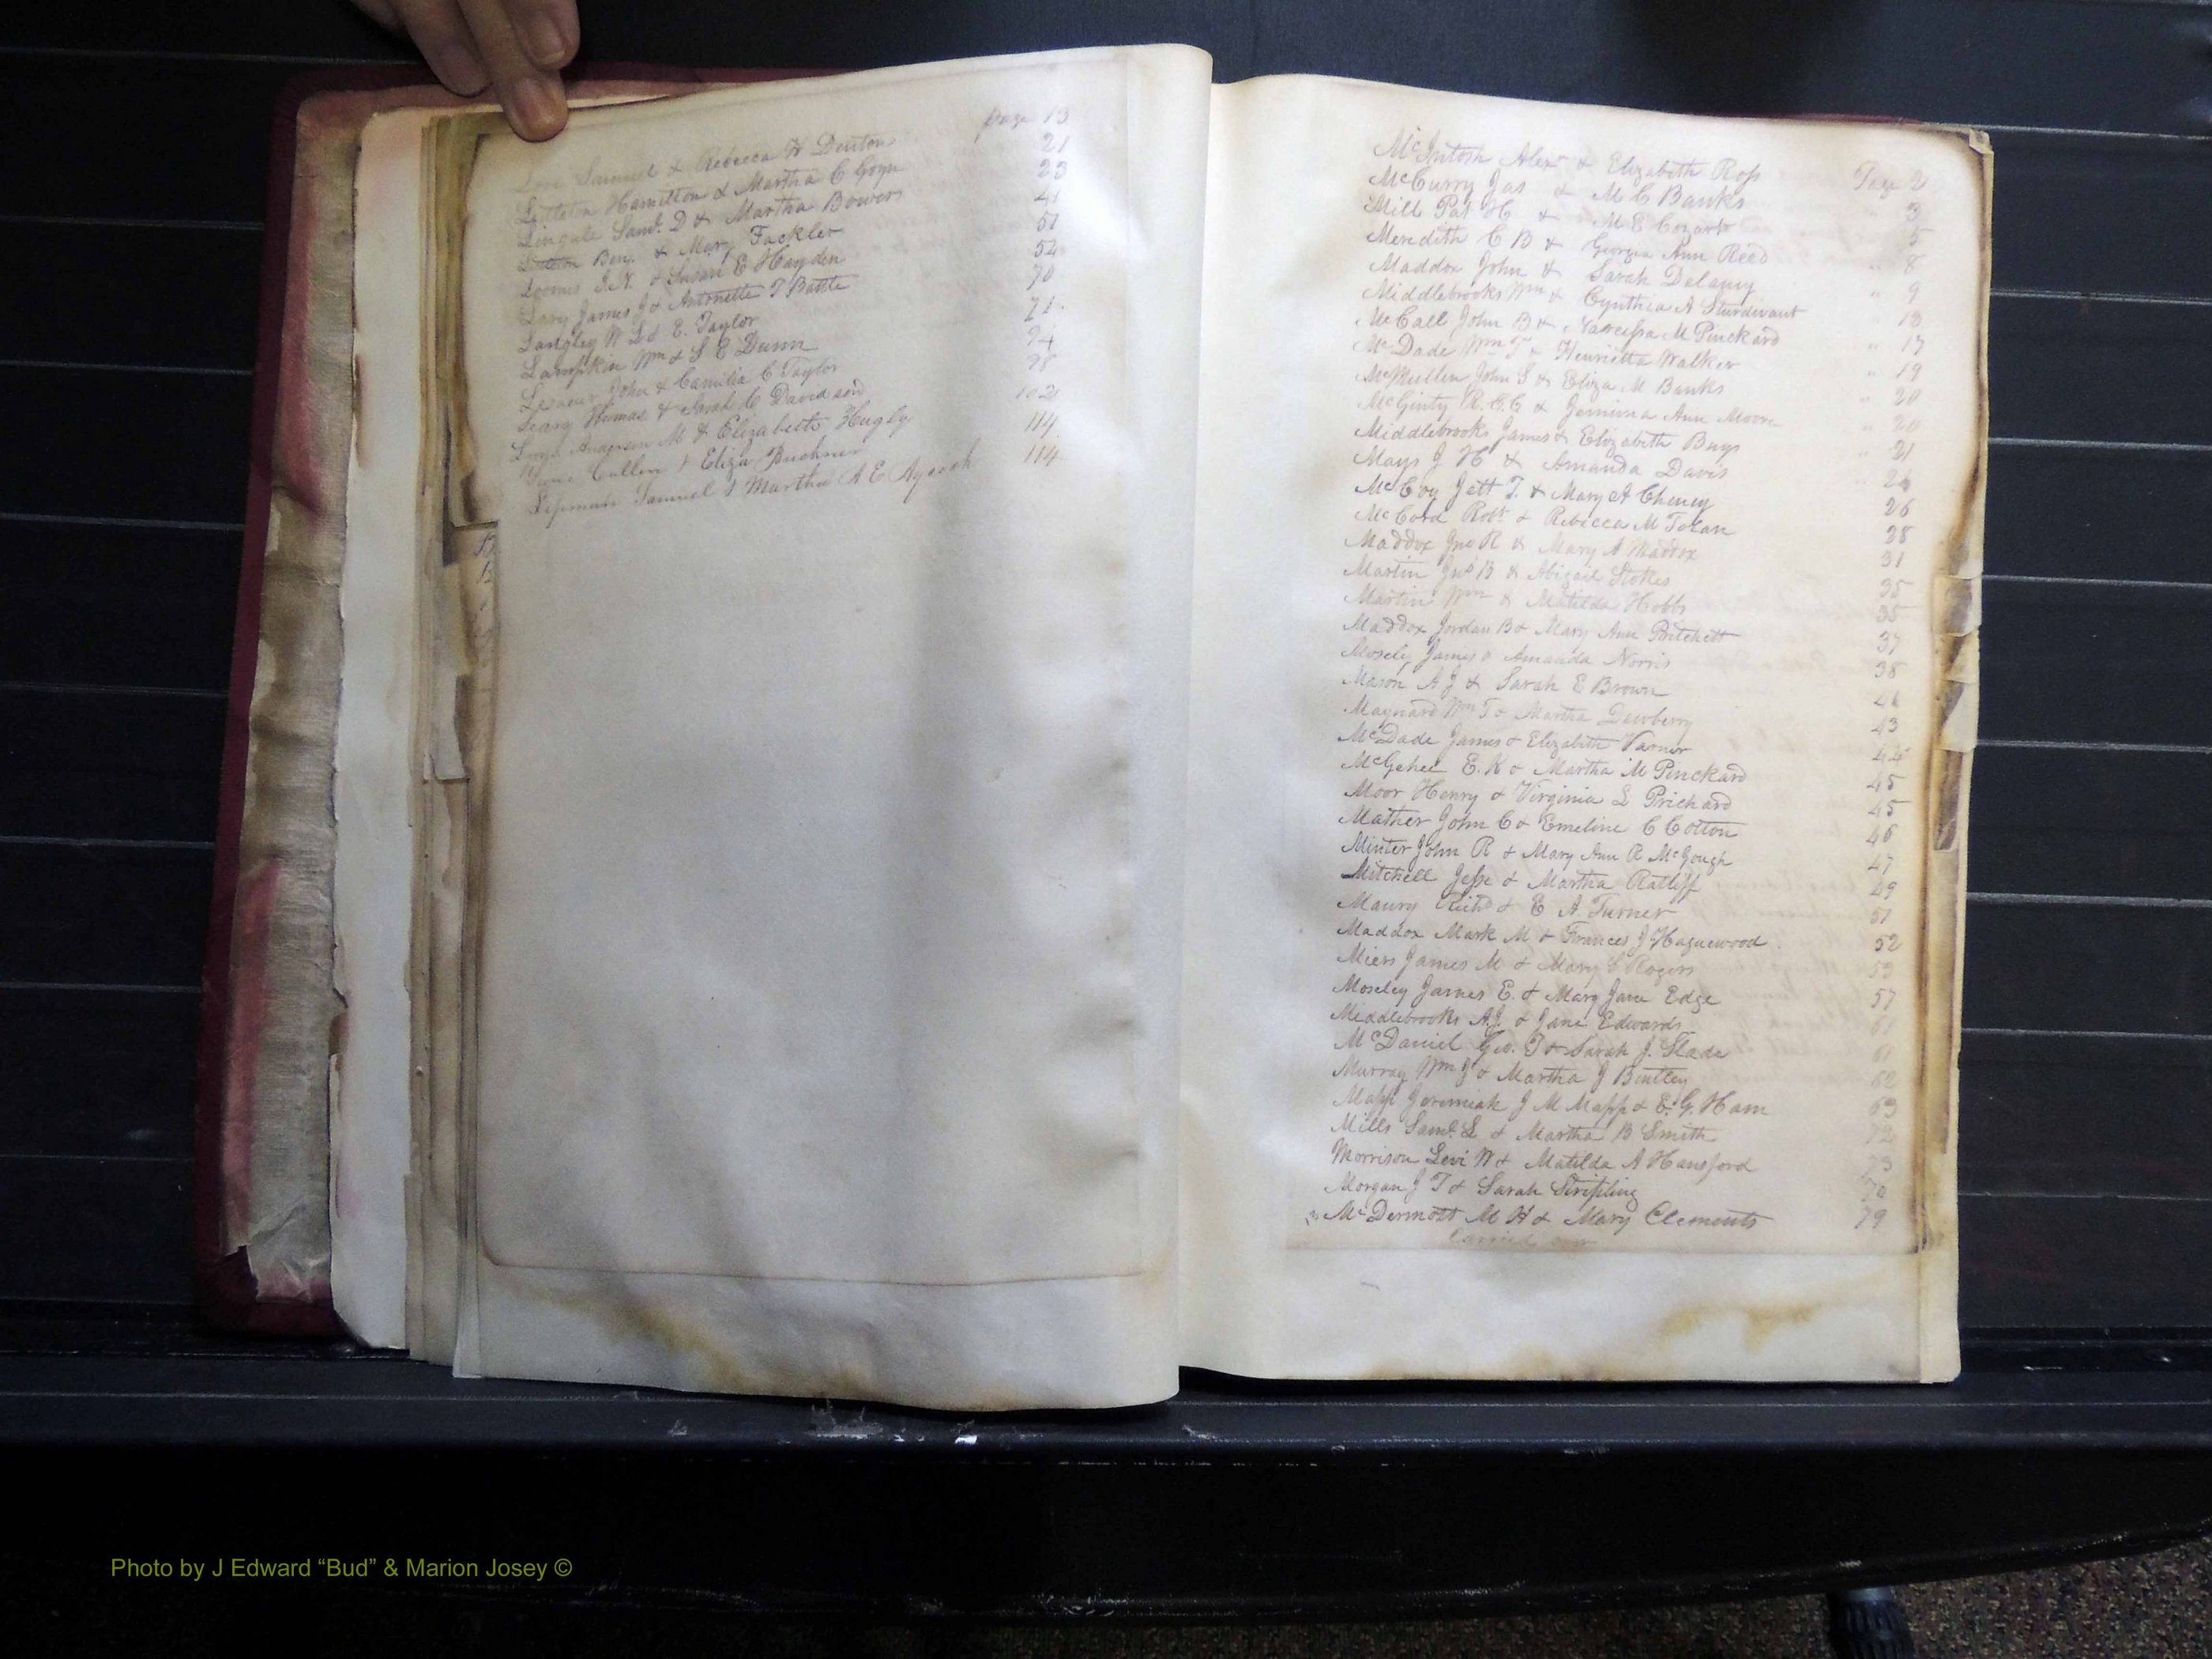 page 13
Samuel & Rebecca H Denton 21
Littleton Hamilton & Martha C Goyn 23
Saml. D & Martha Bowers 41
Benj. & Mary Fackler 51
Loomis I. N. & Susan E Hayden 54
Lary James J & Antonette T Battle 70
Langley W L & E. Taylor 71
Lampkin Wm & S E Dunn 94
John & Camilia C Taylor 98
Thomas & Sarah C Davidson 102
Anderson M & Elizabeth Hugly 114
Cullen & Eliza Buckner 114
Samuel & Martha A E Aycock
McIntosh Alexr & Elizabeth Ross Page 2
McCurry Jas & M C Banks " 3
Mill Pat H & M E Cozart " 5
Meredith C B & Georgia Ann Reed " 8
Maddox John & Sarah Delany " 9
Middlebrooks Wm & Cynthia A Sturdivant " 13
McCall John B & Narcissa M Pinckard " 17
McDade Wm T & Henrietta Walker " 19
McMullen John S & Eliza M Banks " 20
McGinty R. G. C & Jemima Ann Moore " 20
Middlebrooks James & Elizabeth Buys " 21
Mays J H & Amanda Davis " 24
McCoy Jett T. & Mary A Cheney 26
McCord Robt & Rebecca M Tolan 28
Maddox Jno R & Mary A Maddox 31
Martin Jno B & Abigail Stokes 35
Martin Wm & Matilda Hobbs 35
Maddox Jordan B & Mary Ann Pritchett 37
Mosely James & Amanda Norris 38
Mason A J & Sarah E Brown 41
Maynard Wm T & Martha Dewberry 43
McDade James & Elizabeth Varner 44
McGehee E. K & Martha M Pinckard 45
Moor Henry & Virginia L Prichard 45
Mather John C & Emeline C Cotton 46
Minter John R & Mary Ann R McGough 47
Mitchell Jesse & Martha Ratliff 49
Maury Richd & E A Turner 51
Maddox Mark M & Frances J Haguewood 52
Miers James M & Mary C Rogers 53
Moseley James E. & Mary Jane Edge 57
Middlebrooks A. J. & Jane Edwards 61
McDaniel Geo. T & Sarah J. Slade 61
Murray Wm J & Martha J Bentley 62
Mapp Jeremiah J M Mapp & E. G. Ham 63
Mills Saml. L & Martha B Smith 72
Morrison Levi W & Matilda A Hansford 73
Morgan J T & Sarah Stripling 76
McDermott M H & Mary Clements 79
Carried over
Photo by J Edward “Bud” & Marion Josey ©